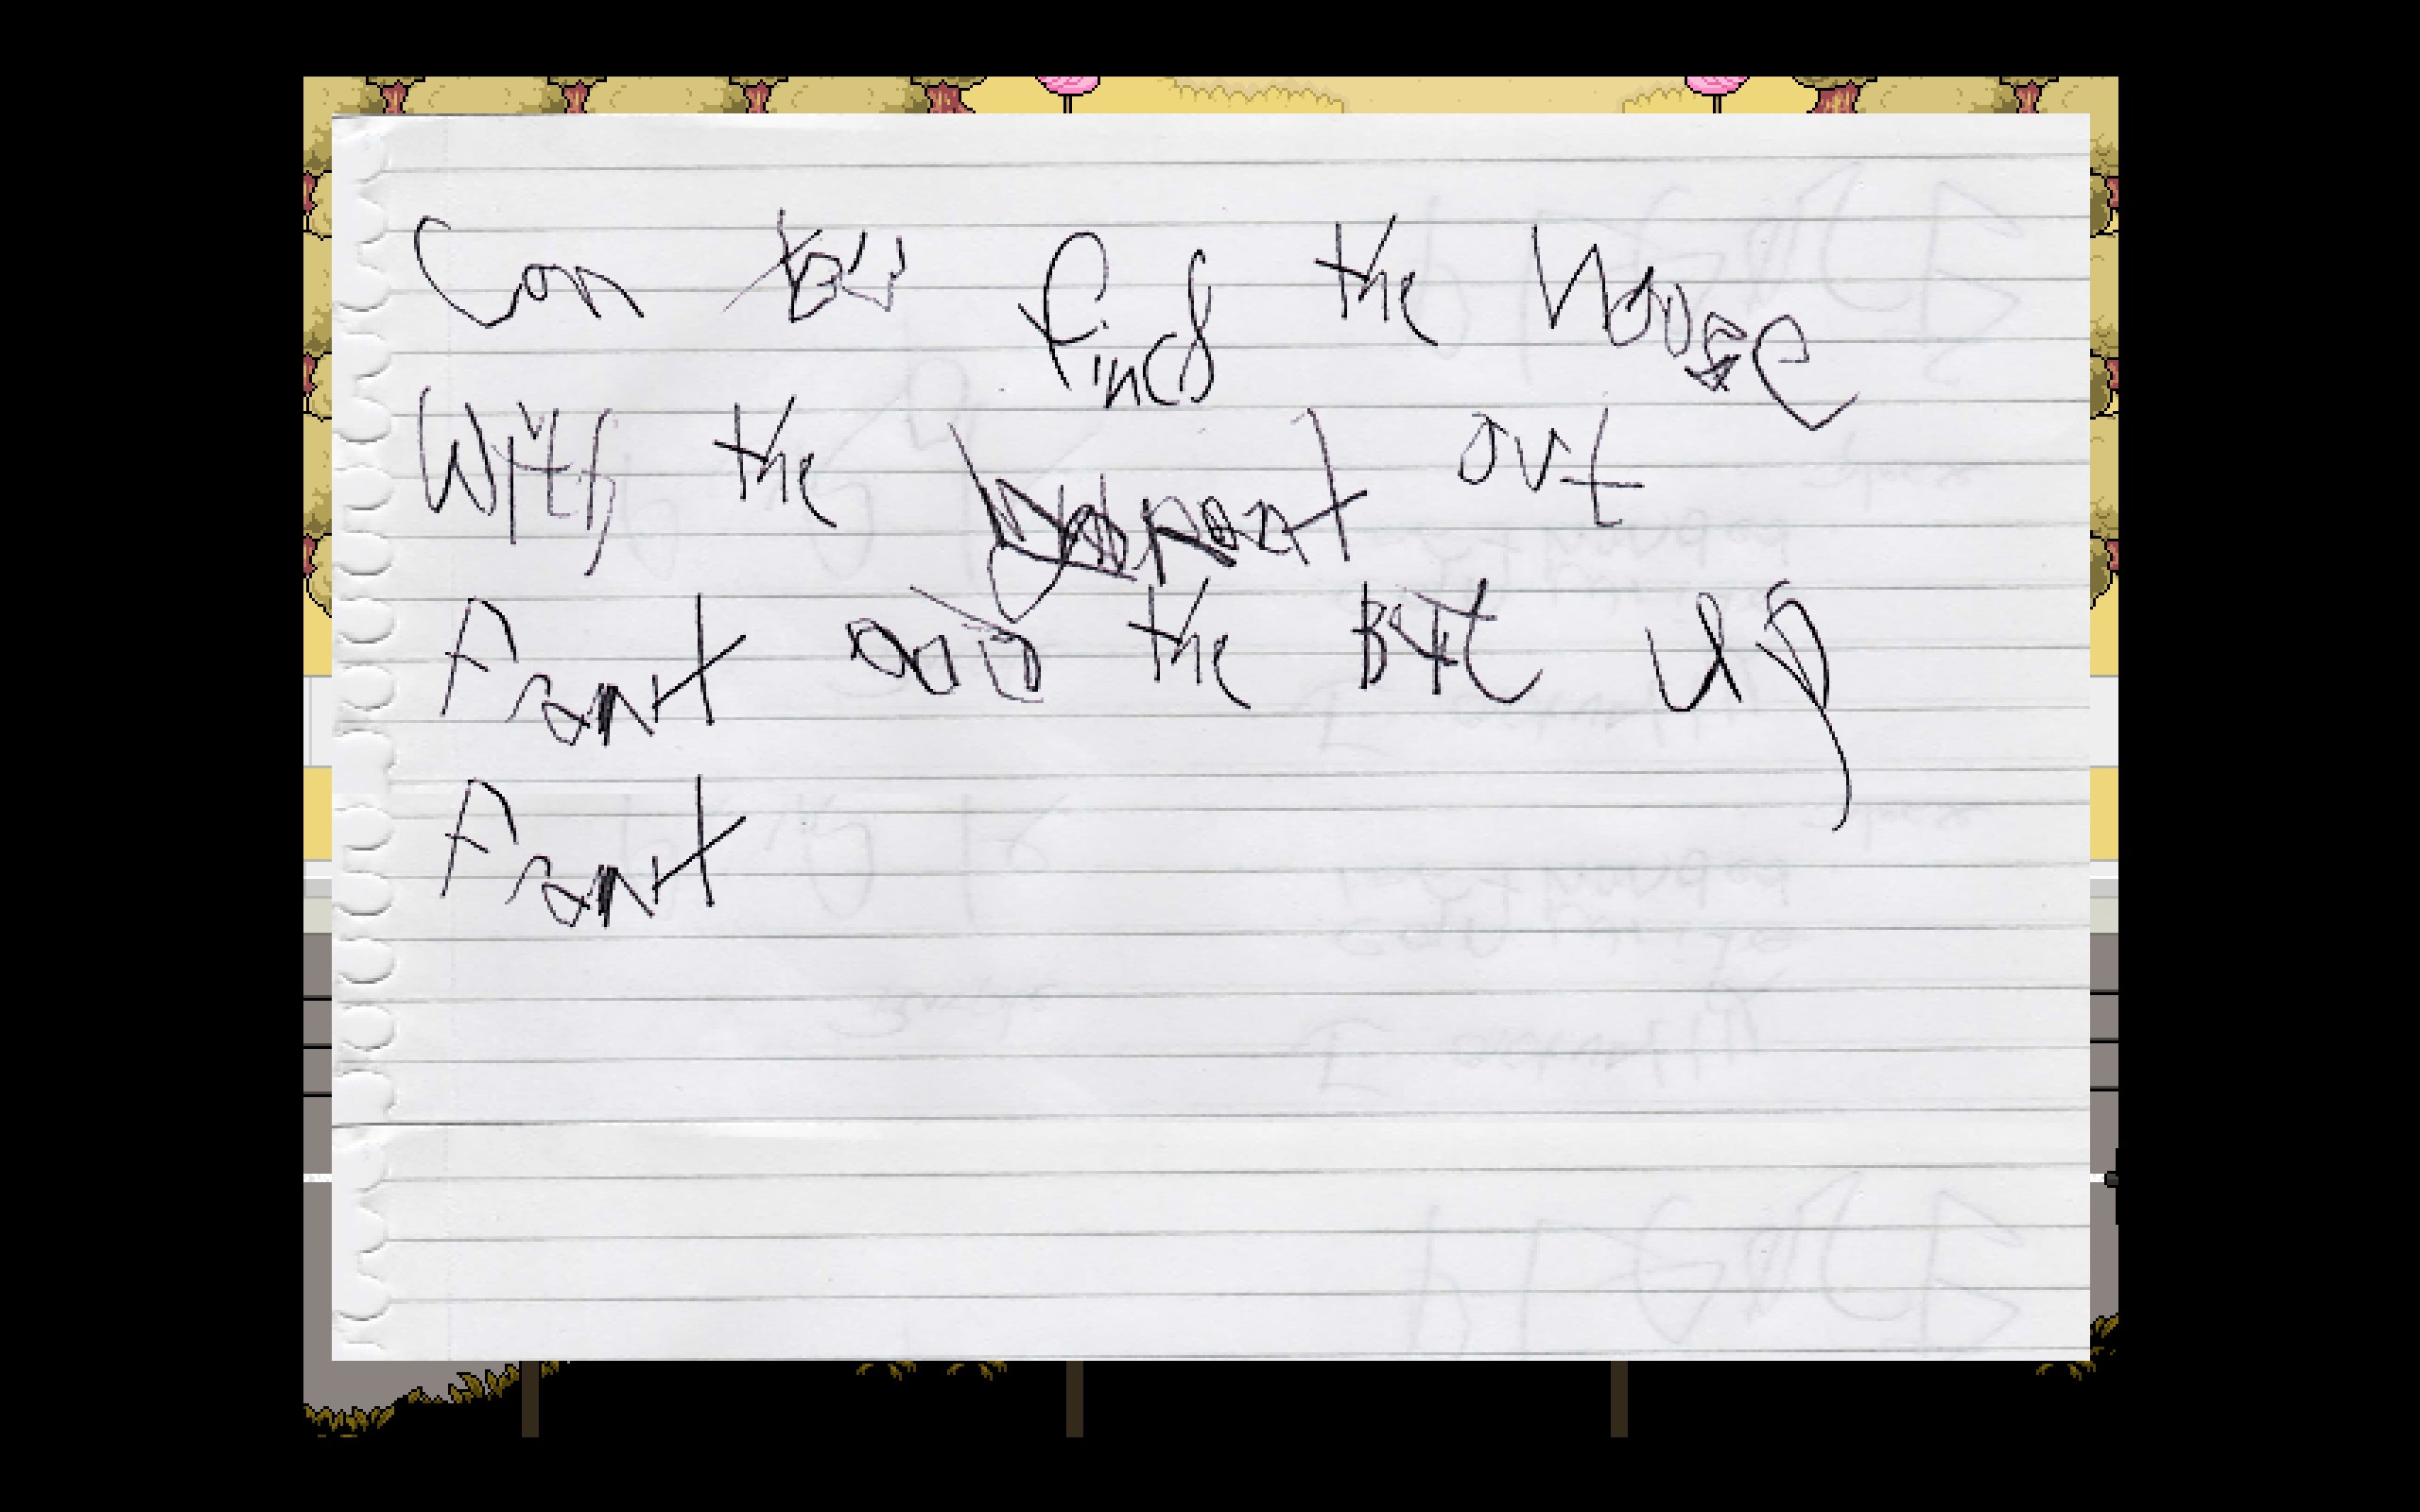 Can you find the house
With the out
Front and the Bit up
Front